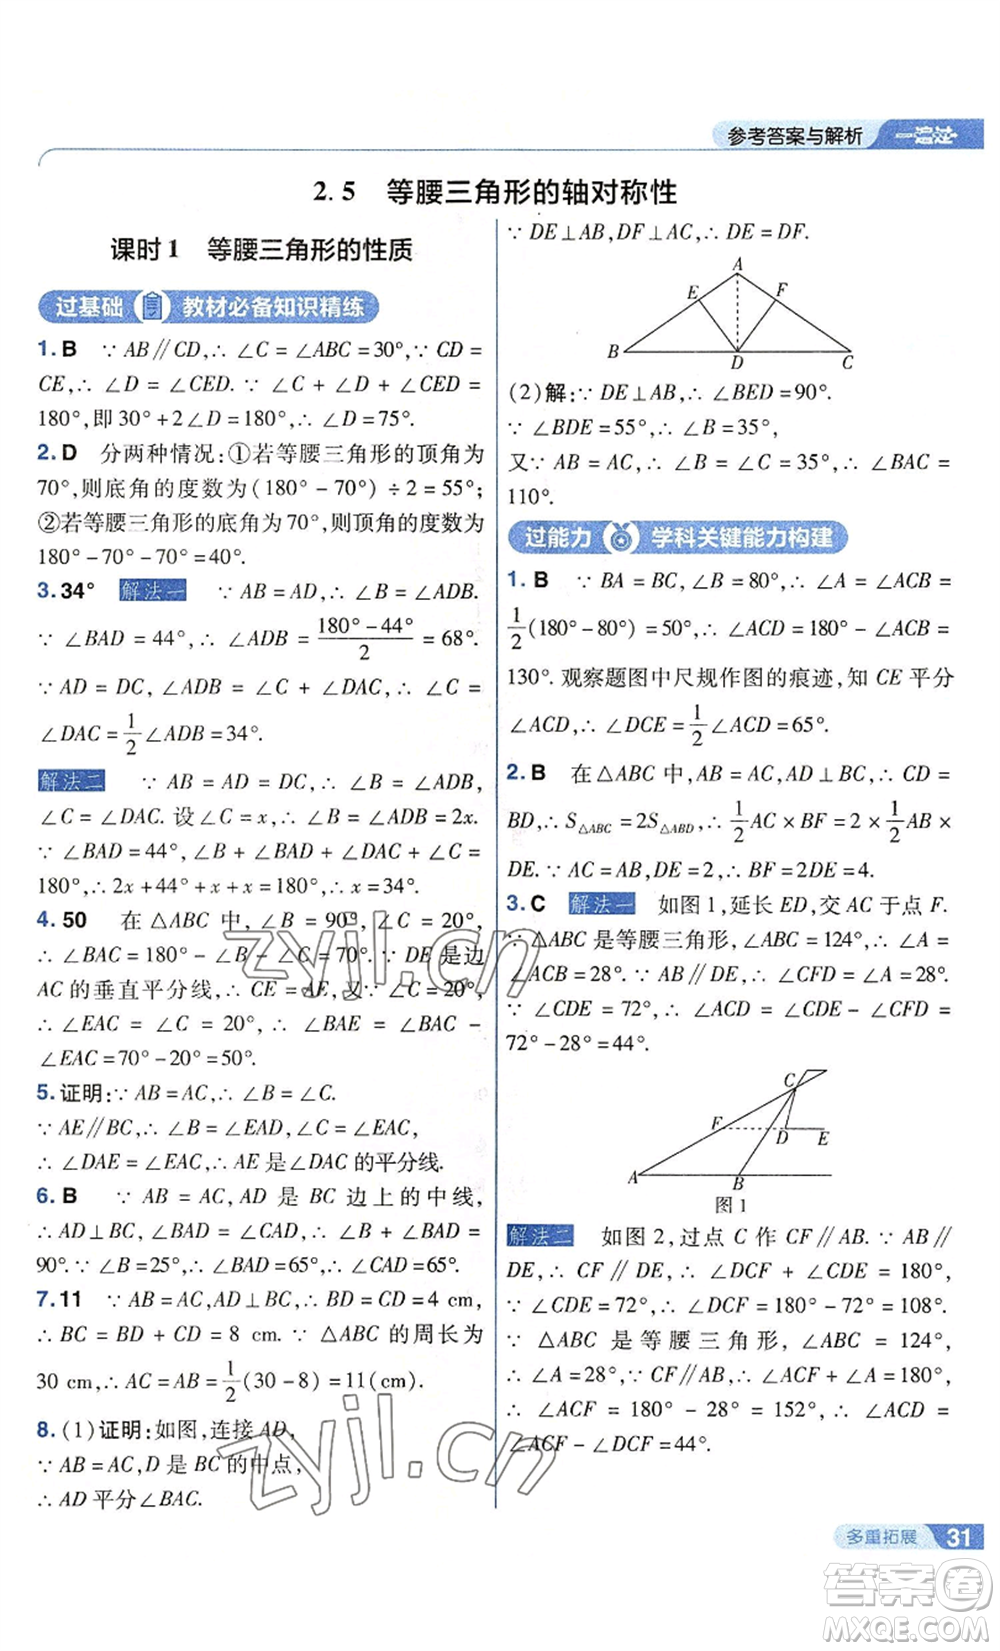 参考答案与解析
2.5 等腰三角形的轴对称性
课时1 等腰三角形的性质
过基础 教材必备知识精练
1. B ∵AB∥CD,∴∠C=∠ABC=30°,∵CD=
CE,∴∠D=∠CED.∵∠C+∠D+∠CED=
180°,即30°+2∠D=180°,∴∠D=75°.
2. D 分两种情况:①若等腰三角形的顶角为
70°,则底角的度数为(180°-70°)÷2=55°;
②若等腰三角形的底角为70°,则顶角的度数为
180°-70°-70°=40°.
3. 34° 解法一 ∵AB=AD,∴∠B=∠ADB.
∵∠BAD=44°,∴∠ADB=(180°-44°)/2=68°.
∵AD=DC,∠ADB=∠C+∠DAC,∴∠C=
∠DAC=1/2∠ADB=34°.
解法二 ∵AB=AD=DC,∴∠B=∠ADB,
∠C=∠DAC.设∠C=x,∴∠B=∠ADB=2x.
∵∠BAD=44°,∠B+∠BAD+∠DAC+∠C=
180°,∴2x+44°+x+x=180°,∴x=34°.
4. 50 在△ABC中,∠B=90°,∠C=20°,
∴∠BAC=180°-∠B-∠C=70°.∵DE是边
AC的垂直平分线,∴CE=AE,又∵∠C=20°,
∴∠EAC=∠C=20°,∴∠BAE=∠BAC-
∠EAC=70°-20°=50°.
5. 证明:∵AB=AC,∴∠B=∠C.
∵AE∥BC,∴∠B=∠EAD,∠C=∠EAC,
∴∠DAE=∠EAC,∴AE是∠DAC的平分线.
6. B ∵AB=AC,AD是BC边上的中线,
∴AD⊥BC,∠BAD=∠CAD,∴∠B+∠BAD=
90°.∵∠B=25°,∴∠BAD=65°,∴∠CAD=65°.
7. 11 ∵AB=AC,AD⊥BC,∴BD=CD=4 cm,
∴BC=BD+CD=8 cm.∵△ABC的周长为
30 cm,∴AC=AB=1/2(30-8)=11(cm).
8. (1)证明:如图,连接AD,
∵AB=AC,D是BC的中点,
∴AD平分∠BAC.
∵DE⊥AB,DF⊥AC,∴DE=DF.
A
E F
B D C
(2)解:∵DE⊥AB,∴∠BED=90°.
∵∠BDE=55°,∴∠B=35°,
又∵AB=AC,∴∠C=35°,∴∠BAC=
110°.
过能力 学科关键能力构建
1. B ∵BA=BC,∠B=80°,∴∠A=∠ACB=
1/2(180°-80°)=50°,∴∠ACD=180°-∠ACB=
130°.观察题图中尺规作图的痕迹,知CE平分
∠ACD,∴∠DCE=1/2∠ACD=65°.
2. B 在△ABC中,AB=AC,AD⊥BC,∴CD=
BD,∴S△ABC=2S△ABD,∴1/2AC×BF=2×1/2AB×
DE.∵AC=AB,DE=2,∴BF=2DE=4.
3. C 解法一 如图1,延长ED,交AC于点F.
∵△ABC是等腰三角形,∠ABC=124°,∴∠A=
∠ACB=28°.∵AB∥DE,∴∠CFD=∠A=28°.
∵∠CDE=72°,∴∠ACD=∠CDE-∠CFD=
72°-28°=44°.
C
F D E
A B
图1
解法二 如图2,过点C作CF∥AB.∵AB∥
DE,∴CF∥DE,∴∠DCF+∠CDE=180°,
∵∠CDE=72°,∴∠DCF=180°-72°=108°.
∵△ABC是等腰三角形,∠ABC=124°,
∴∠A=28°.∵CF∥AB,∴∠ACF+∠A=180°,
∴∠ACF=180°-28°=152°,∴∠ACD=
∠ACF-∠DCF=44°.
zyjl.cn
zyjl.cn
多重拓展 31
答案卷
MXQE.COM